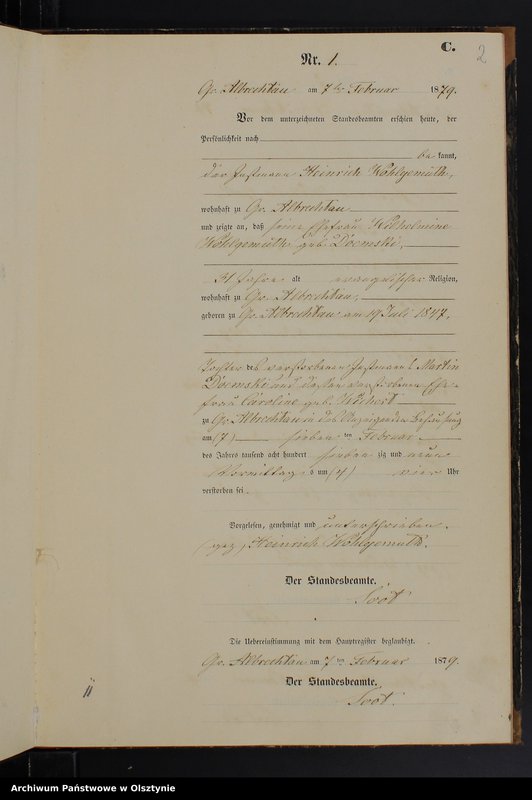 C.
2
Nr. 1.
Gr. Albrechtau am 7ten Februar 1879.
Vor dem unterzeichneten Standesbeamten erschien heute, der
Persönlichkeit nach
be kannt,
der Instmann Heinrich Wohlgemuth,
wohnhaft zu Gr. Albrechtau
und zeigte an, daß seine Ehefrau Wilhelmine
Wohlgemuth geb. Doemski,
31 Jahre alt evangelischer Religion,
wohnhaft zu Gr. Albrechtau,
geboren zu Gr. Albrechtau am 19 Juli 1847,
Tochter des verstorbenen Instmann Martin
Doemski und dessen verstorbenen Ehe-
frau Caroline geb.
zu Gr. Albrechtau in des Anzeigenden Behausung
am (7) sieben ten Februar
des Jahres tausend acht hundert sieben zig und neun
Vormittag s um (4) vier Uhr
verstorben sei.
Vorgelesen, genehmigt und unterschrieben.
(gez) Heinrich Wohlgemuth.
Der Standesbeamte.
Die Uebereinstimmung mit dem Hauptregister beglaubigt.
Gr. Albrechtau am 7 ten Februar 1879.
Der Standesbeamte.
Archiwum Państwowe w Olsztynie